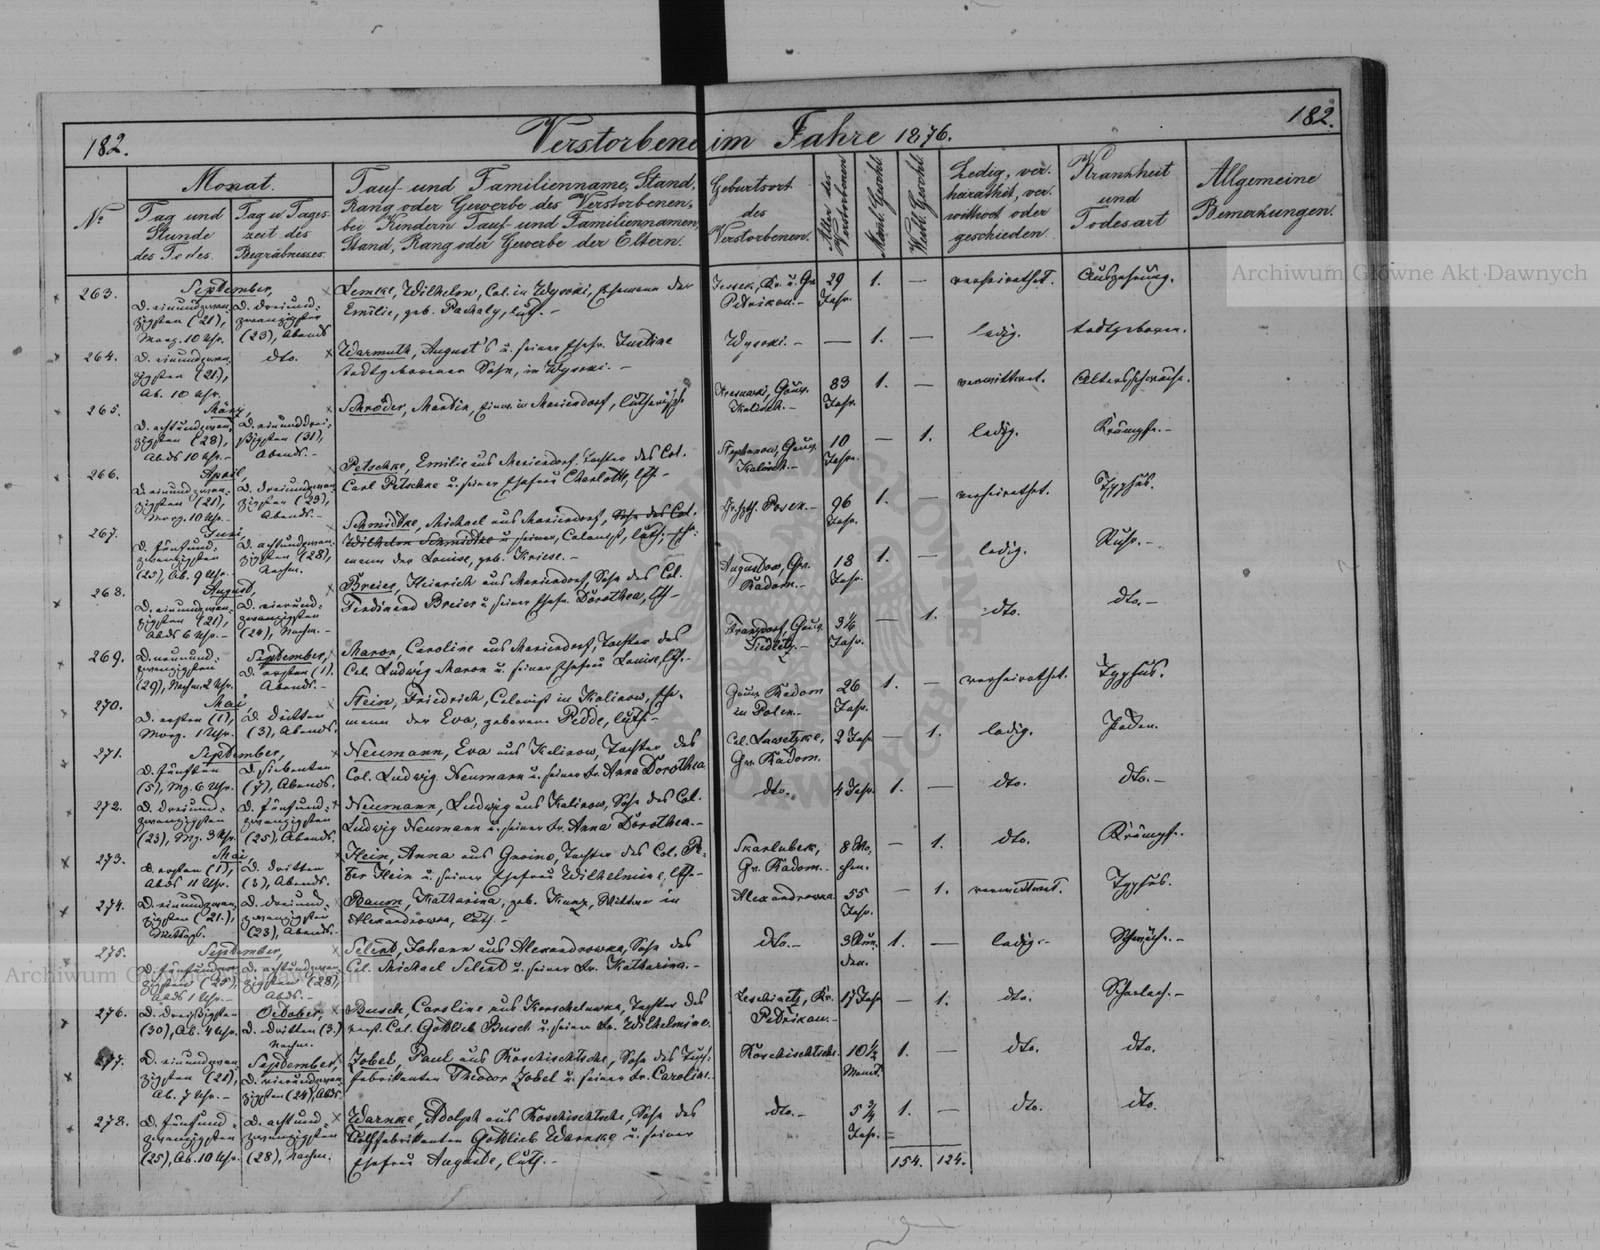 182.
Verstorbene im Jahre 1876.
182.
No
Monat.
Tag und
Stunde
des Todes.
Tag u. Tages-
zeit des
Begräbnisses.
Tauf- und Familienname, Stand,
Rang oder Gewerbe des Verstorbenen,
bei Kindern Tauf- und Familiennamen,
Stand, Rang oder Gewerbe der Eltern.
Geburtsort
des
Verstorbenen.
Alter des
Verstorbenen
Männl. Geschl.
Weibl. Geschl.
Ledig, ver-
heirathet, ver-
wittwet oder
geschieden.
Krankheit
und
Todesart
Allgemeine
Bemerkungen.
263.
September,
D. einundzwan-
zigsten (21),
Morg. 10 Uhr.
D. dreiund-
zwanzigsten
(23), Abends
Lemke, Wilhelm, Col. in Wysoki, Ehemann der
Emilie, geb. Pachaly, luth. –
Petrikau. –
29
Jahr.
1.
—
verheirathet.
Auszehrung.
264.
D. einundzwan-
zigsten (21),
Ab. 10 Uhr.
dto.
Warmuth, August's u. seiner Ehefr. Justine
todtgeborener Sohn, in Wysoki. –
Wysoki. –
—
1.
—
ledig.
todtgeboren.
265.
März,
D. achtundzwan-
zigsten (28),
Abds 10 Uhr. –
D. einunddrei-
ßigsten (31),
Abends. –
Schröder, Martin, Einw. in Mariendorf, lutherisch
Kalisch. –
83
Jahr.
1.
—
verwittwet.
Altersschwäche.
266.
April,
D. einundzwan-
zigsten (21),
Morg. 10 Uhr. –
D. dreiundzwan-
zigsten (23),
Abends. –
Petschke, Emilie aus Mariendorf, Tochter des Col.
Carl Petschke u. seiner Ehefrau Charlotte, lth. –
Stephanow, Gouv.
Kalisch. –
10
Jahr.
—
1.
ledig.
Krämpfe. –
267.
Juni,
D. fünfund-
zwanzigsten
(25), Ab. 9 Uhr.
D. achtundzwan-
zigsten (28),
Nachm.
Schmidtke, Michael aus Mariendorf, Sohn des Col.
Wilhelm Schmidtke u. seiner, Colonist, luth., Ehe-
mann der Louise, geb. Kriese. –
Posen. –
96
Jahr.
1.
—
verheirathet.
Typhus.
268.
August,
D. einundzwan-
zigsten (21),
Abds 6 Uhr. –
D. vierund-
zwanzigsten
(24), Nachm. –
Breier, Heinrich aus Mariendorf, Sohn des Col.
Ferdinand Breier u. seiner Ehefr. Dorothea, lth. –
Augustow, Gv.
Radom. –
18
Jahr.
1.
—
ledig.
Ruhr. –
269.
D. neunund-
zwanzigsten
(29), Nachm. 2 Uhr.
September,
D. ersten (1).
Abends. –
Maron, Caroline aus Mariendorf, Tochter des
Col. Ludwig Maron u. seiner Ehefrau Louise, lth. –
Franzdorf, Gouv.
Siedletz. –
3 1/6
Jahr.
—
1.
dto.
dto. –
270.
Mai,
D. ersten (1),
Morg. 1 Uhr.
D. dritten
(3), Abends.
Hein, Friedrich, Colonist in Kalinow, Ehe-
mann der Eva, geborene Pedde, luth. –
Gouv. Radom
in Polen. –
26
Jahr.
1.
—
verheirathet.
Typhus.
271.
September,
D. fünften
(5), Mg. 6 Uhr.
D. siebenten
(7), Abends.
Neumann, Eva aus Kalinow, Tochter des
Col. Ludwig Neumann u. seiner Fr. Anna Dorothea
Gv. Radom.
2 Jahr
—
1.
ledig.
Pocken.
272.
D. dreiund-
zwanzigsten
(23), Mg. 3 Uhr.
D. fünfund-
zwanzigsten
(25), Abends.
Neumann, Ludwig aus Kalinow, Sohn des Col.
Ludwig Neumann u. seiner Fr. Anna Dorothea. –
dto.
4 Jahr.
1.
—
dto.
dto. –
273.
Mai,
D. ersten (1),
Abds 11 Uhr.
D. dritten
(3), Abends.
Hein, Anna aus Gnoino, Tochter des Col. Pe-
ter Hein u. seiner Ehefrau Wilhelmine, lth. –
Skarlubek,
Gv. Radom. –
8 Wo-
chen.
—
1.
dto.
Krämpfe.
274.
D. einundzwan-
zigsten (21.),
Mittags.
D. dreiund-
zwanzigsten
(23), Abends. –
Baum, Katharina, geb. Kunz, Wittwe in
Alexandrowka, luth. –
Alexandrowka.
55
Jahr.
—
1.
verwittwet.
Typhus.
275.
September,
D. fünfundzwan-
zigsten (25),
Abds 1 Uhr. –
D. achtundzwan-
zigsten (28),
Abds. –
Selent, Johann aus Alexandrowka, Sohn des
Col. Michael Selent u. seiner Fr. Katharina. –
dto. –
3 Stun-
den.
1.
—
ledig. –
Schwäche. –
276.
D. dreißigsten
(30), Ab. 4 Uhr.
October,
D. dritten (3.)
Nachm.
Busch, Caroline aus Koschelewka, Tochter des
verst. Col. Gottlieb Busch u. seiner Fr. Wilhelmine.
Petrikau. –
17 Jahr
—
1.
dto.
Scharlach. –
277.
D. einundzwan-
zigsten (21),
Ab. 7 Uhr. –
September,
D. vierundzwan-
zigsten (24), Abds.
Zobel, Paul aus Roschischtsche, Sohn des Tuch-
fabrikanten Theodor Zobel u. seiner Fr. Caroline.
Roschischtsche.
10 1/2
Monat.
1.
—
dto.
dto.
278.
D. fünfund-
zwanzigsten
(25), Ab. 10 Uhr.
D. achtund-
zwanzigsten
(28), Nachm.
Warnke, Adolph aus Roschischtsche, Sohn des
Tuchfabrikanten Gottlieb Warnke u. seiner
Ehefrau Auguste, luth. –
dto. –
5 3/4
Jahr.
1.
—
dto.
dto.
154.
124.
Archiwum Główne Akt Dawnych
Archiwum Główne Akt Dawnych